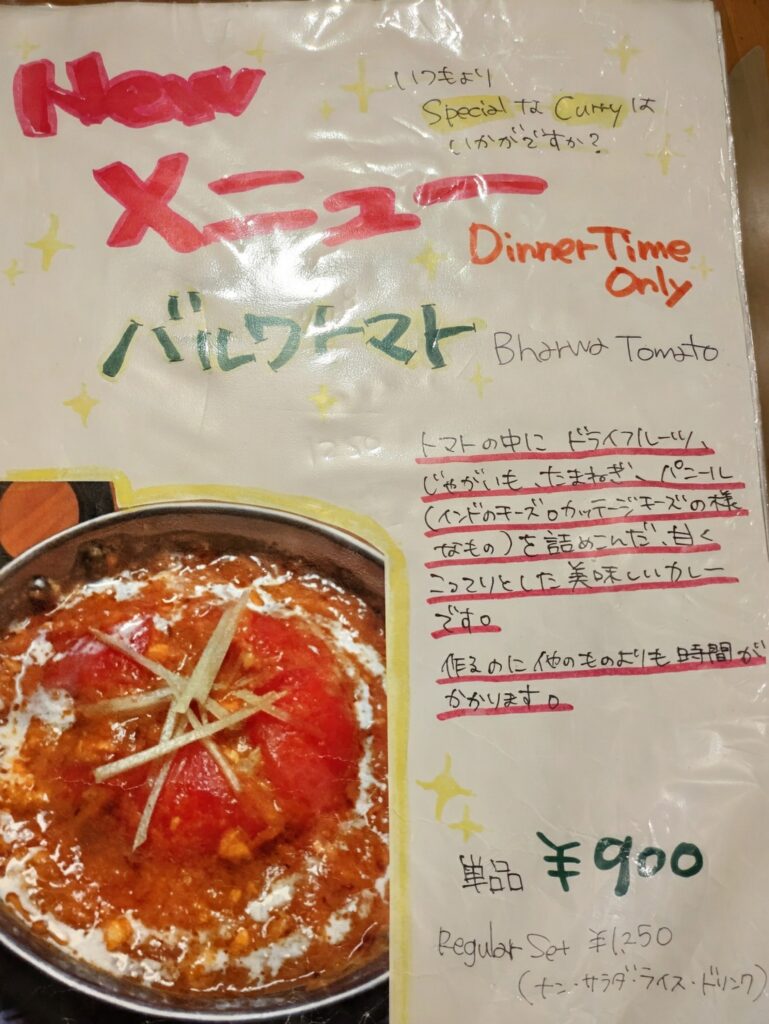 New
メニュー
いつもより
Special な Curry は
いかがですか?
Dinner Time
Only
バルワトマト Bharwa Tomato
トマトの中に ドライフルーツ、
じゃがいも、たまねぎ、パニール
(インドのチーズ。カッテージチーズの様
なもの)を詰めこんだ、甘く
こってりとした美味しいカレー
です。
作るのに他のものよりも時間が
かかります。
単品 ¥900
Regular Set ¥1,250
(ナン・サラダ・ライス・ドリンク)